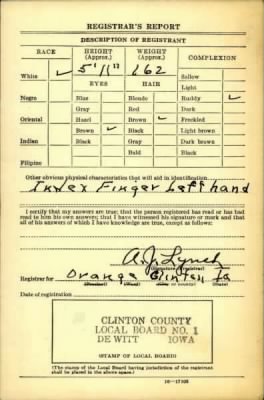 REGISTRAR'S REPORT
DESCRIPTION OF REGISTRANT
RACE
HEIGHT
(Approx.)
WEIGHT
(Approx.)
COMPLEXION
White ✓
5' 11"
162
Sallow
EYES
HAIR
Light
Negro
Blue
Blonde
Ruddy ✓
Gray
Red
Dark
Oriental
Hazel
Brown ✓
Freckled
Brown ✓
Black
Light brown
Indian
Black
Gray
Dark brown
Bald
Black
Filipino
Other obvious physical characteristics that will aid in identification
Index Finger Left hand
I certify that my answers are true; that the person registered has read or has had
read to him his own answers; that I have witnessed his signature or mark and that
all of his answers of which I have knowledge are true, except as follows:
A. J. Lynch
(Signature of registrar)
Registrar for Orange Clinton Ia
Date of registration
CLINTON COUNTY
LOCAL BOARD NO. 1
DE WITT IOWA
(STAMP OF LOCAL BOARD)
(The stamp of the Local Board having jurisdiction of the registrant
shall be placed in the above space.)